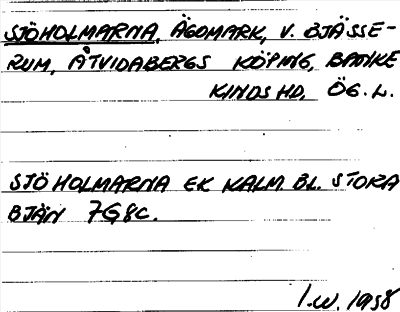 SJÖHOLMARNA, ÄGOMARK, V. BJÄSSE-
RUM, ÅTVIDABERGS KÖPING, BANKE
KINDS HD, ÖG. L.
SJÖHOLMARNA EK KALM. BL. STORA
BJÄN 7G8c.
I.W. 1958